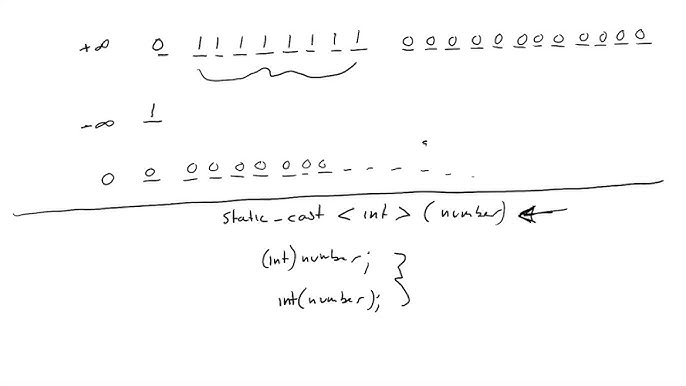 +∞ 0 1 1 1 1 1 1 1 1 0 0 0 0 0 0 0 0 0 0 0 0
-∞ 1
0 0 0 0 0 0 0 0 0 - - - - - -
static_cast < int > (number) ←
(int) number;
int(number);